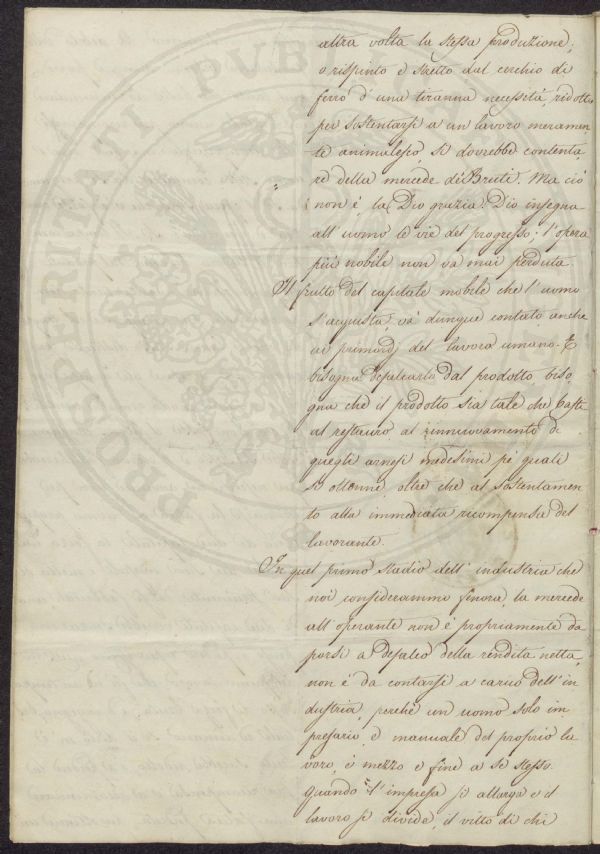 altra volta la stessa produzione;
o rispinto e stretto dal cerchio di
ferro d'una tiranna necessità, ridotto
per sostentarsi a un lavoro meramen
te animalesco, si dovrebbe contenta
re della mercede dei Bruti. Ma ciò
non è, la Dio grazia. Dio insegna
all'uomo le vie del progresso: l'opera
più nobile non va mai perduta.
Il frutto del capitale mobile che l'uomo
s'acquista, va dunque contato anche
ai primordj del lavoro umano. E
bisogna defalcarlo dal prodotto, biso
gna che il prodotto sia tale che basti
al restauro al rinnuovamento di
quegli arnesi medesimi pe' quali
si ottenne, oltre che al sostentamen
to alla immediata ricompensa del
lavorante.
In quel primo stadio dell'industria che
noi considerammo finora, la mercede
all'operante non è propriamente da
porsi a defalco della rendita netta,
non è da contarsi a carico dell'in
dustria, perchè un uomo solo im
presario e manuale del proprio la
voro, è mezzo e fine a se stesso.
quando l'impresa si allarga e il
lavoro si divide, il vitto di chi
PROSPERITATI PUB